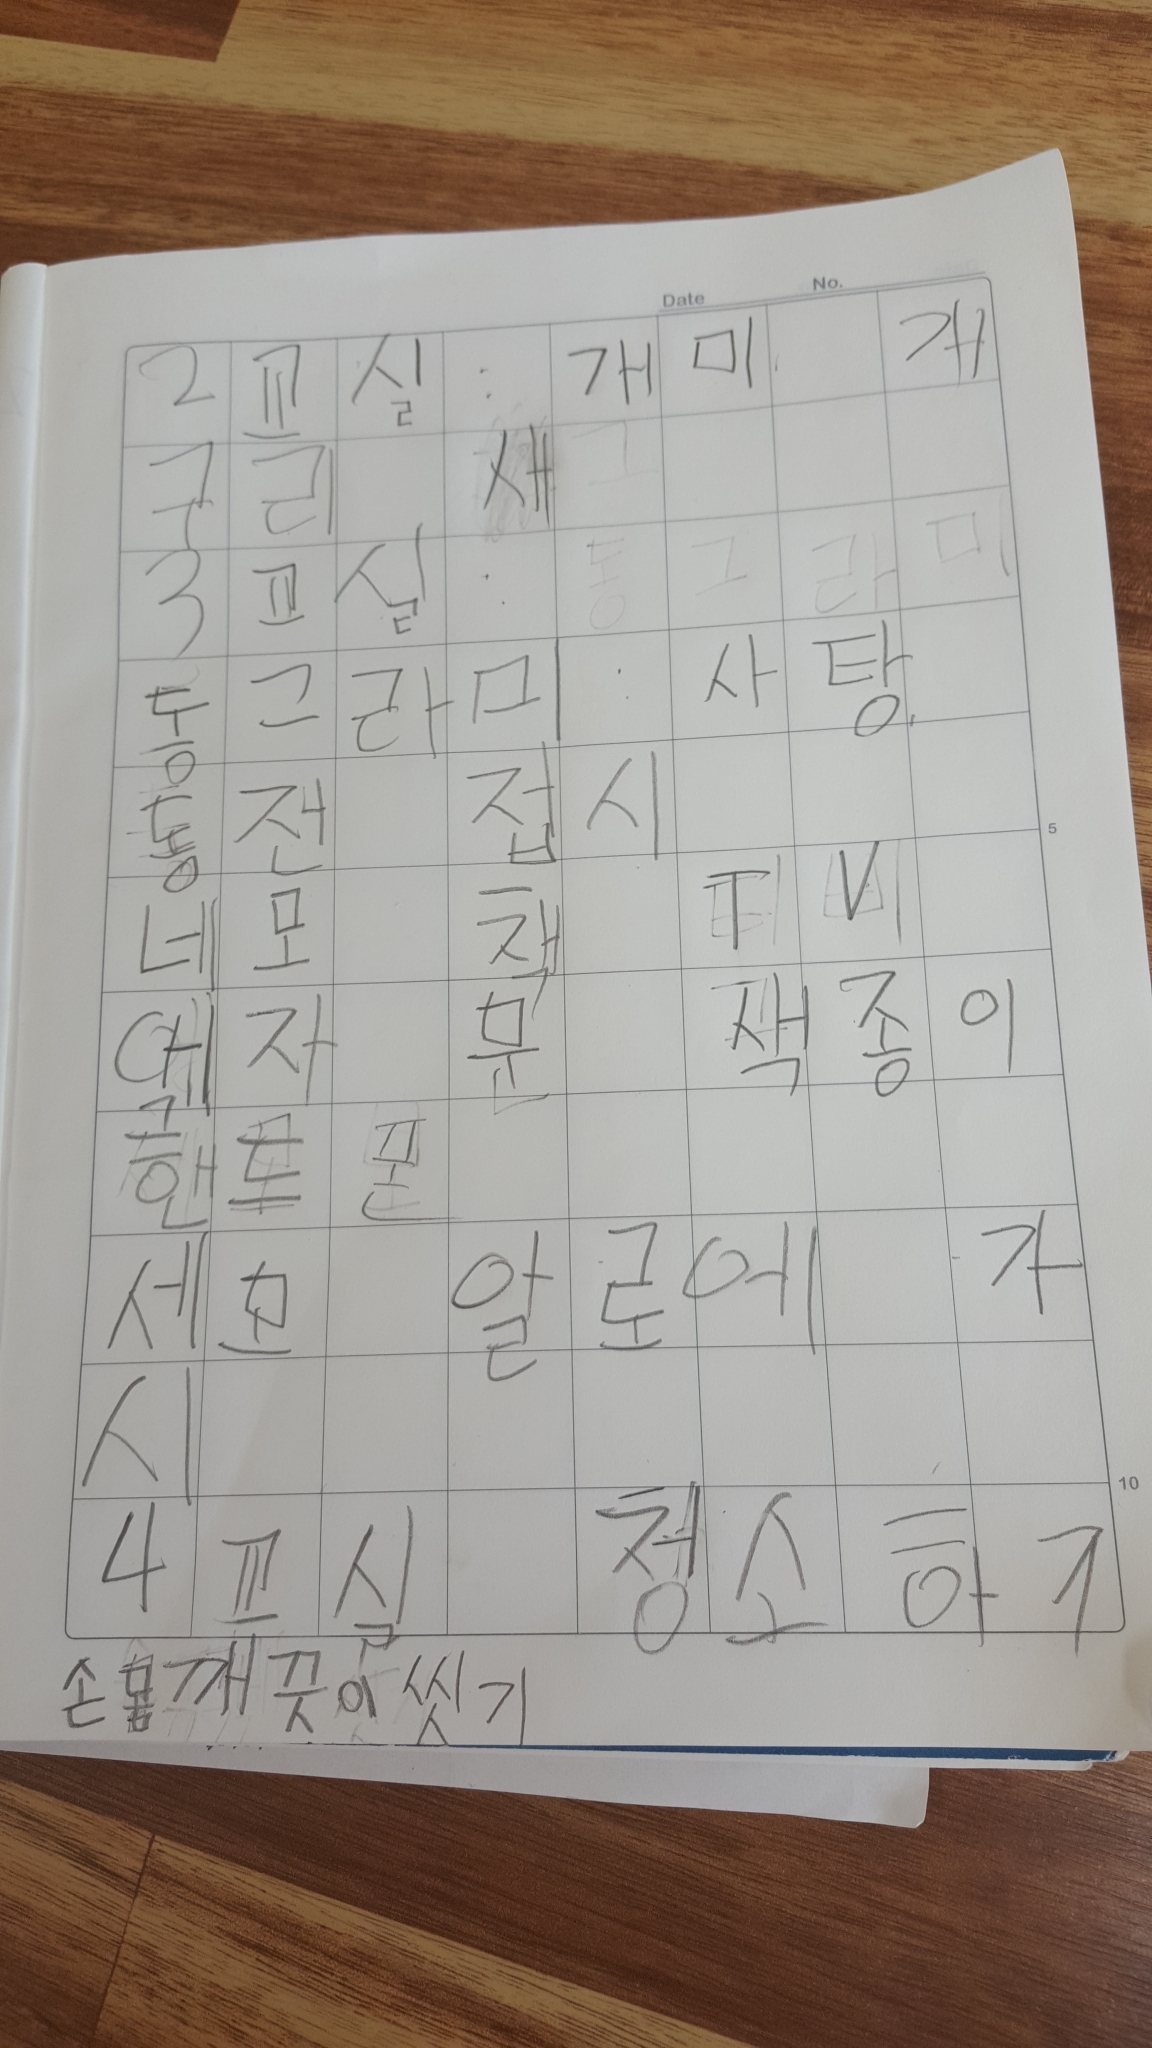 Date No.
2교실 : 개미 개
구리 새
3교실 : 동그라미
동그라미 : 사탕
동전 접시
네모 책 TV
액자 문 색종이
핸드폰
세모 알로에 가
시
4교실 청소하기
손 깨끗이 씻기
5
10